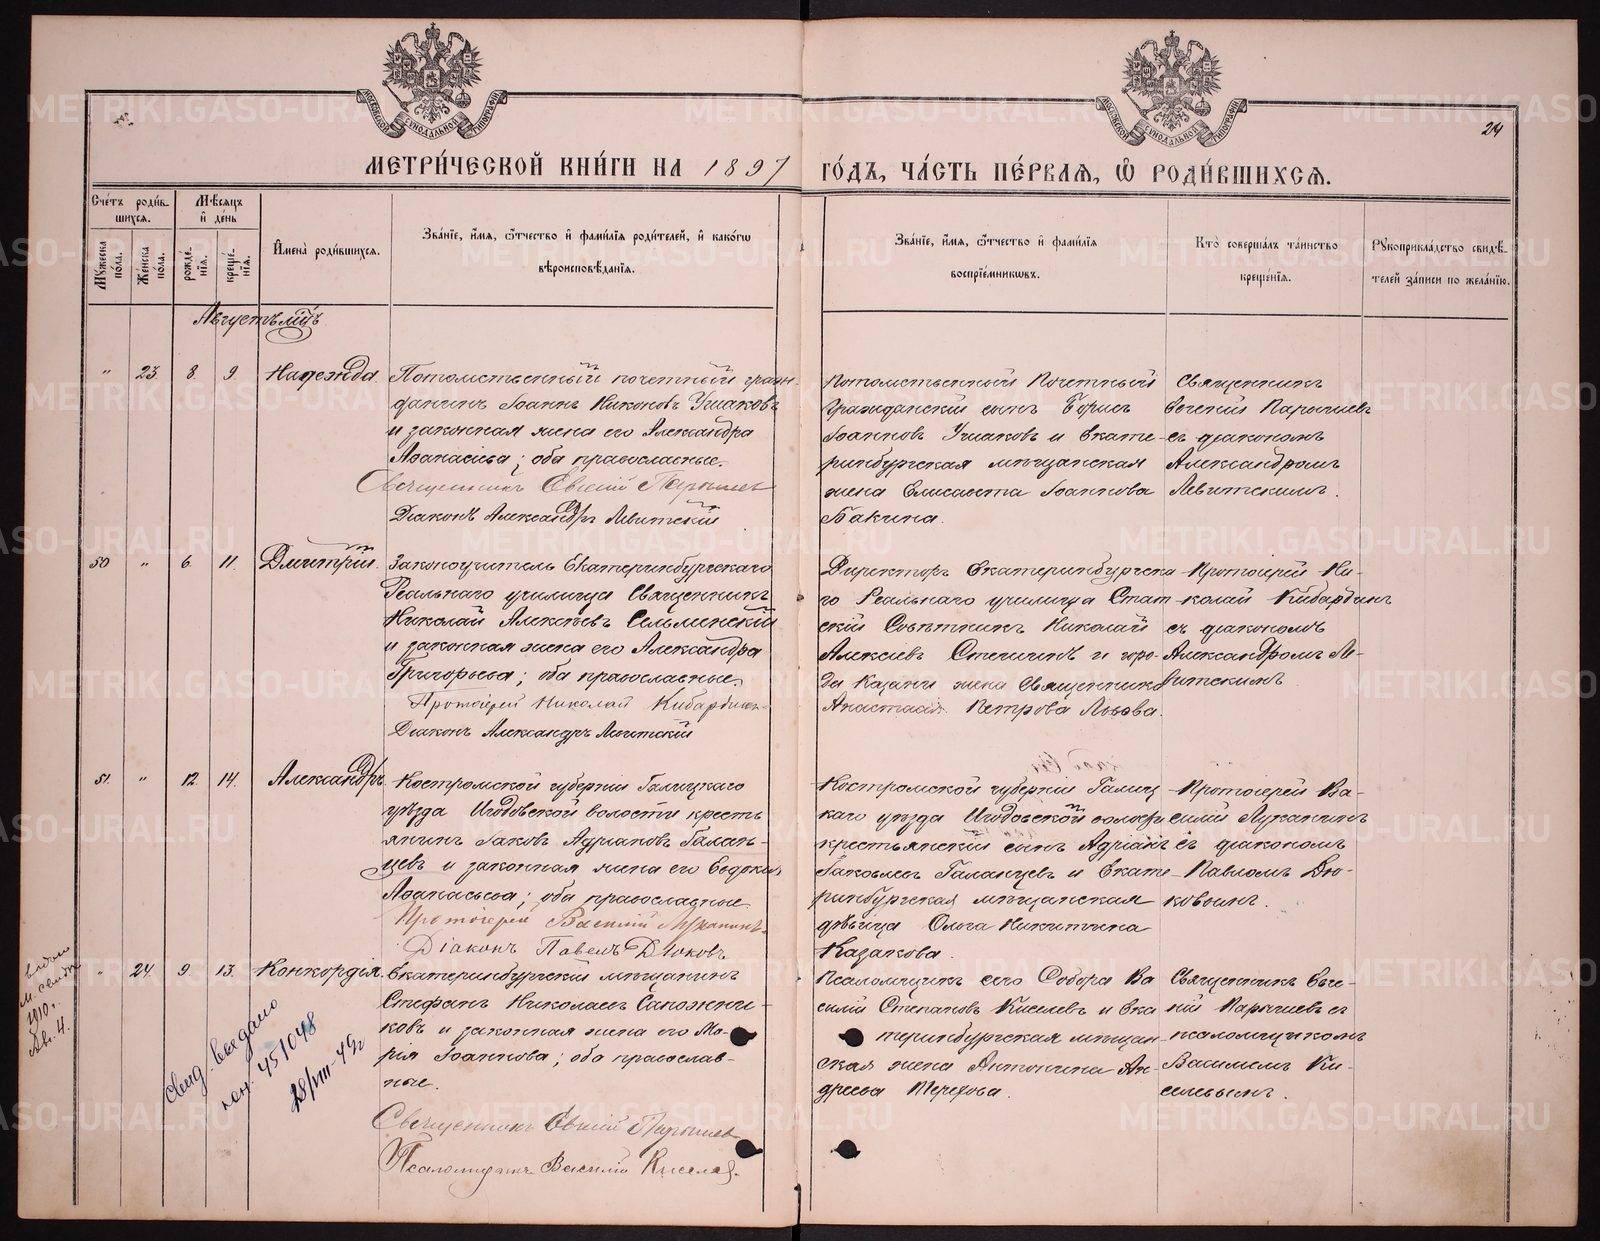 МОСКОВСКОЙ СѴНОДАЛЬНОЙ ТИПОГРАФІИ
МОСКОВСКОЙ СѴНОДАЛЬНОЙ ТИПОГРАФІИ
24
МЕТРИ́ЧЕСКОЙ КНИ́ГИ НА 1897 ГО́ДЪ, ЧА́СТЬ ПЕ́РВАЯ, Ѽ РОДИ́ВШИХСЯ.
Сче́тъ роди́вшихся.
Мꙋ́жеска по́ла.
Же́нска по́ла.
Мѣ́сяцъ и҆ де́нь
рожде́нїя.
креще́нїя.
И҆мена̀ роди́вшихся.
Зва́нїе, и҆́мя, ѻ҆́тчество и҆ фами́лїя роди́телей, и҆ како́гѡ
вѣроисповѣ́данїя.
Зва́нїе, и҆́мя, ѻ҆́тчество и҆ фами́лїя
воспрїе́мникѡвъ.
Кто̀ соверша́лъ та́инство
креще́нїя.
Рꙋкоприкла́дство свидѣ́
телей за́писи по жела́нїю.
Августъ мцъ
" 23. 8. 9. Надежда.
Потомственный почетный граж
данинъ Іоаннъ Никоновъ Ушаковъ
и законная жена его Александра
Аѳанасьева; оба православные.
Священникъ Евгеній
Діаконъ Александръ Левитскій
Потомственный Почетный
Гражданскій сынъ Борисъ
Іоанновъ Ушаковъ и Екате-
ринбургская мѣщанская
жена Елисавета Іоаннова
Бакина.
Священникъ
Евгеній
съ діакономъ
Александромъ
Левитскимъ.
50 " 6. 11. Дмитрій.
Законоучитель Екатеринбургскаго
Реальнаго училища Священникъ
Николай Алексѣевъ Сельменскій
и законная жена его Александра
Григорьева; оба православные.
Протоіерей Николай Кибардинъ
Діаконъ Александръ Левитскій
Директоръ Екатеринбургска
го Реальнаго училища Стат
скій Совѣтникъ Николай
Алексѣевъ и горо-
да Казани жена Священника
Анастасія Петрова Львова.
Протоіерей Ни-
колай Кибардинъ
съ діакономъ
Александромъ Ле-
витскимъ
51. " 12. 14. Александръ.
Костромской губерніи Галицкаго
уѣзда Игодовской волости кресть
янинъ Іаковъ Адріановъ Галан-
цевъ и законная жена его Евдокія
Аѳанасьева; оба православные
Протоіерей Василій Луканинъ.
Діаконъ Павелъ Дюковъ
Костромской губерніи Галиц
каго уѣзда Игодовской волости
крестьянскій сынъ Адріанъ
Іаковлевъ Галанцевъ и Екате
ринбургская мѣщанская
дѣвица Ольга Никитина
Казакова.
Протоіерей Ва-
силій Луканинъ
съ діакономъ
Павломъ Дю-
ковымъ.
" 24. 9. 13. Конкордія.
Екатеринбургскій мѣщанинъ
Стефанъ Николаевъ Сапожни-
ковъ и законная жена его Ма-
рія Іоаннова; оба православ-
ные.
Священникъ Евгеній
Псаломщикъ Василій Киселев.
Псаломщикъ сего Собора Ва
силій Степановъ Киселевъ и Ека
теринбургская мѣщан-
ская жена Антонина Ан-
дреева Терехова.
Священникъ Евге-
ній съ
псаломщикомъ
Василіемъ Ки-
селевымъ.
1910 г.
Авг. 4.
Свид. выдано
451048
28/VIII-49г